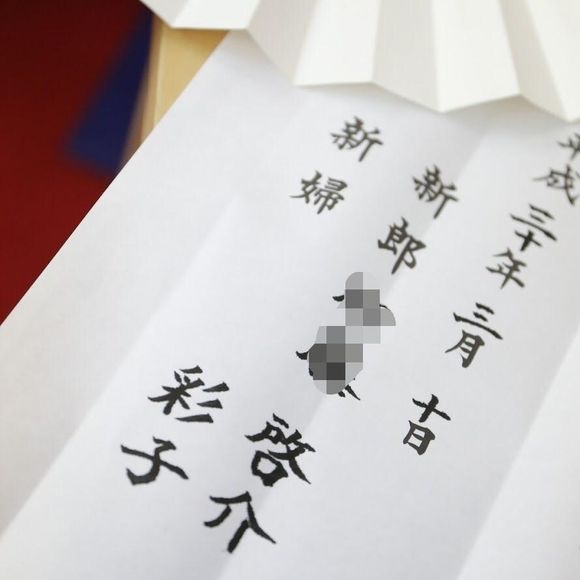 平成三十年三月十日
新郎 啓介
新婦 彩子